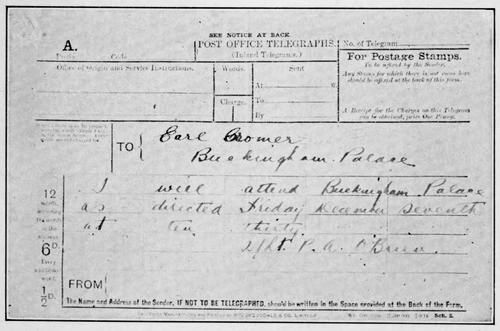 SEE NOTICE AT BACK.
A.
POST OFFICE TELEGRAPHS.
(Inland Telegrams.)
No. of Telegram
Prefix Code
Office of Origin and Service Instructions.
Words.
Sent
At M
Charge.
To
By
For Postage Stamps.
To be affixed by the Sender.
Any Stamp for which there is not room here
should be affixed at the back of this form.
A Receipt for the Charges on this Telegram
can be obtained, price One Penny.
TO
Earl Cromer
Buckingham Palace
12
6D.
Every
additional
word
½D.
I will attend Buckingham Palace
as directed Friday December Seventh
at ten thirty
2/Lt. P. A. O'Brien
FROM
The Name and Address of the Sender, IF NOT TO BE TELEGRAPHED, should be written in the Space provided at the Back of the Form.
Sch. 2.